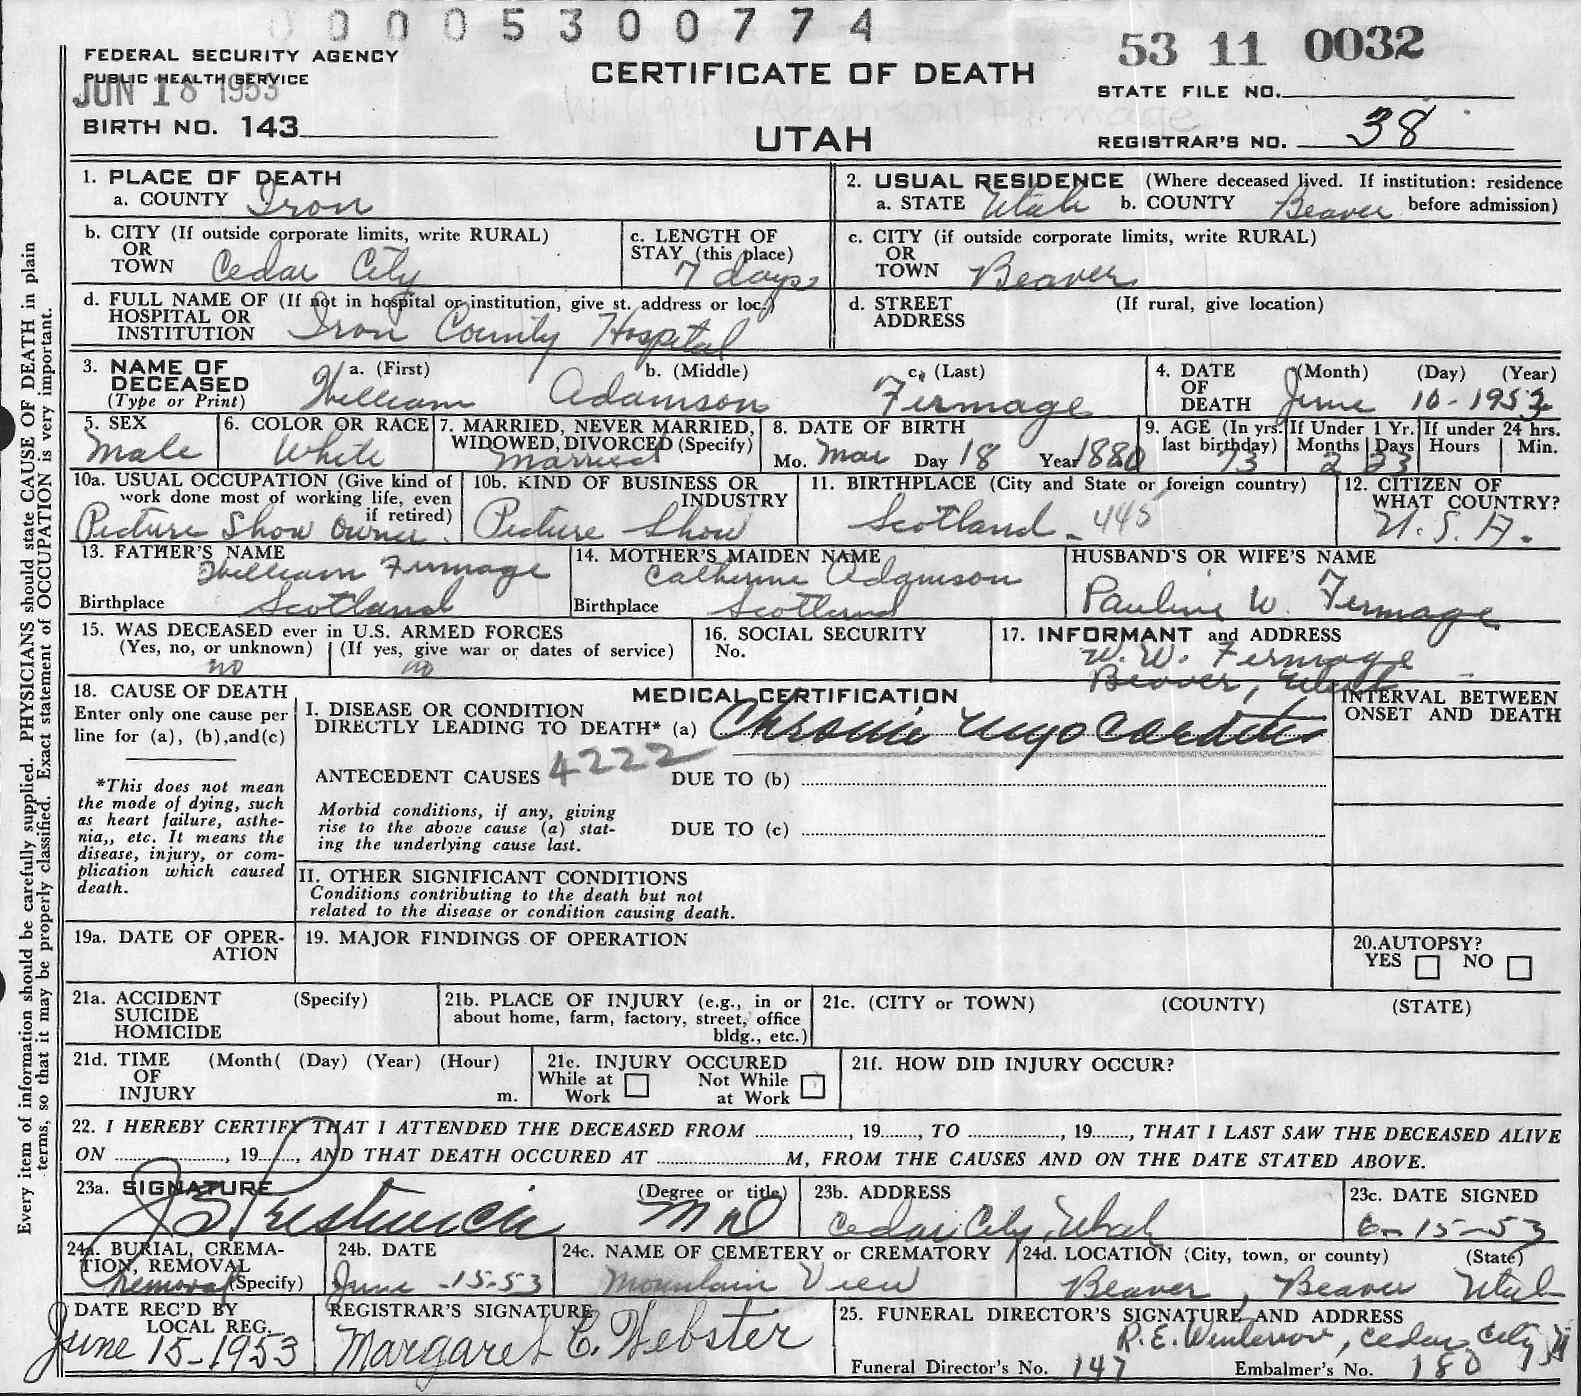 0 0 0 0 5 3 0 0 7 7 4
FEDERAL SECURITY AGENCY
PUBLIC HEALTH SERVICE
JUN 18 1953
BIRTH NO. 143
CERTIFICATE OF DEATH
UTAH
53 11 0032
STATE FILE NO.
REGISTRAR'S NO. 38
1. PLACE OF DEATH
a. COUNTY Iron
2. USUAL RESIDENCE (Where deceased lived. If institution: residence
a. STATE Utah b. COUNTY Beaver before admission)
b. CITY (If outside corporate limits, write RURAL)
OR
TOWN Cedar City
c. LENGTH OF
STAY (this place)
7 days
c. CITY (if outside corporate limits, write RURAL)
OR
TOWN Beaver
d. FULL NAME OF (If not in hospital or institution, give st. address or loc.)
HOSPITAL OR
INSTITUTION Iron County Hospital
d. STREET (If rural, give location)
ADDRESS
3. NAME OF a. (First) b. (Middle) c. (Last)
DECEASED
(Type or Print) William Adamson Firmage
4. DATE (Month) (Day) (Year)
OF
DEATH June 10-1953
5. SEX
Male
6. COLOR OR RACE
White
7. MARRIED, NEVER MARRIED,
WIDOWED, DIVORCED (Specify)
Married
8. DATE OF BIRTH
Mo. Mar Day 18 Year 1880
9. AGE (In yrs.
last birthday)
73
If Under 1 Yr.
Months Days
2 23
If under 24 hrs.
Hours Min.
10a. USUAL OCCUPATION (Give kind of
work done most of working life, even
if retired)
Picture Show Owner.
10b. KIND OF BUSINESS OR
INDUSTRY
Picture Show
11. BIRTHPLACE (City and State or foreign country)
Scotland - 445
12. CITIZEN OF
WHAT COUNTRY?
U.S.A.
13. FATHER'S NAME
William Firmage
Birthplace Scotland
14. MOTHER'S MAIDEN NAME
Catherine Adamson
Birthplace Scotland
HUSBAND'S OR WIFE'S NAME
Pauline W. Firmage
15. WAS DECEASED ever in U.S. ARMED FORCES
(Yes, no, or unknown) (If yes, give war or dates of service)
no no
16. SOCIAL SECURITY
No.
17. INFORMANT and ADDRESS
W. W. Firmage
Beaver, Utah
18. CAUSE OF DEATH
Enter only one cause per
line for (a), (b),and(c)
*This does not mean
the mode of dying, such
as heart failure, asthe-
nia,, etc. It means the
disease, injury, or com-
plication which caused
death.
MEDICAL CERTIFICATION
I. DISEASE OR CONDITION
DIRECTLY LEADING TO DEATH* (a) Chronic Myocarditis
4222
ANTECEDENT CAUSES DUE TO (b)
Morbid conditions, if any, giving
rise to the above cause (a) stat-
ing the underlying cause last.
DUE TO (c)
INTERVAL BETWEEN
ONSET AND DEATH
II. OTHER SIGNIFICANT CONDITIONS
Conditions contributing to the death but not
related to the disease or condition causing death.
19a. DATE OF OPER-
ATION
19. MAJOR FINDINGS OF OPERATION
20.AUTOPSY?
YES NO
21a. ACCIDENT (Specify)
SUICIDE
HOMICIDE
21b. PLACE OF INJURY (e.g., in or
about home, farm, factory, street, office
bldg., etc.)
21c. (CITY or TOWN) (COUNTY) (STATE)
21d. TIME (Month( (Day) (Year) (Hour)
OF
INJURY m.
21e. INJURY OCCURED
While at Work
Not While at Work
21f. HOW DID INJURY OCCUR?
22. I HEREBY CERTIFY THAT I ATTENDED THE DECEASED FROM ........, 19......, TO ........, 19......, THAT I LAST SAW THE DECEASED ALIVE
ON ........, 19......, AND THAT DEATH OCCURED AT ........M, FROM THE CAUSES AND ON THE DATE STATED ABOVE.
23a. SIGNATURE (Degree or title)
Prestwich MD
23b. ADDRESS
Cedar City, Utah
23c. DATE SIGNED
6-15-53
24a. BURIAL, CREMA-
TION, REMOVAL
Removal (Specify)
24b. DATE
June -15-53
24c. NAME OF CEMETERY or CREMATORY
Mountain View
24d. LOCATION (City, town, or county) (State)
Beaver, Beaver Utah
DATE REC'D BY
LOCAL REG.
June 15-1953
REGISTRAR'S SIGNATURE
Margaret C. Webster
25. FUNERAL DIRECTOR'S SIGNATURE AND ADDRESS
R. E. Winterrow, Cedar City
Funeral Director's No. 147 Embalmer's No. 180
Every item of information should be carefully supplied. PHYSICIANS should state CAUSE OF DEATH in plain
terms, so that it may be properly classified. Exact statement of OCCUPATION is very important.